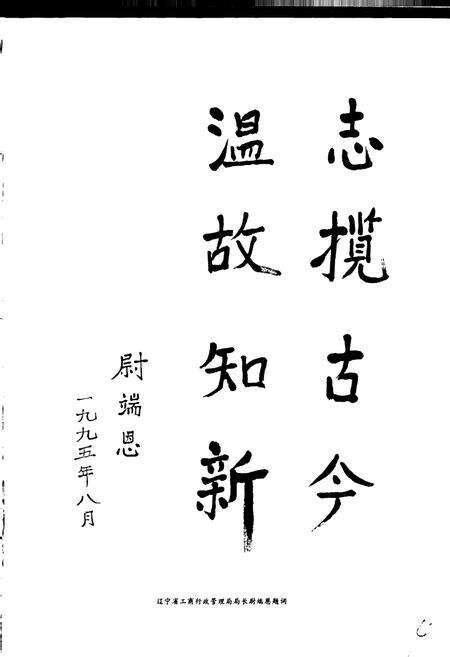 志揽古今
温故知新
尉端恩
一九九五年八月
辽宁省工商行政管理局局长尉端恩题词